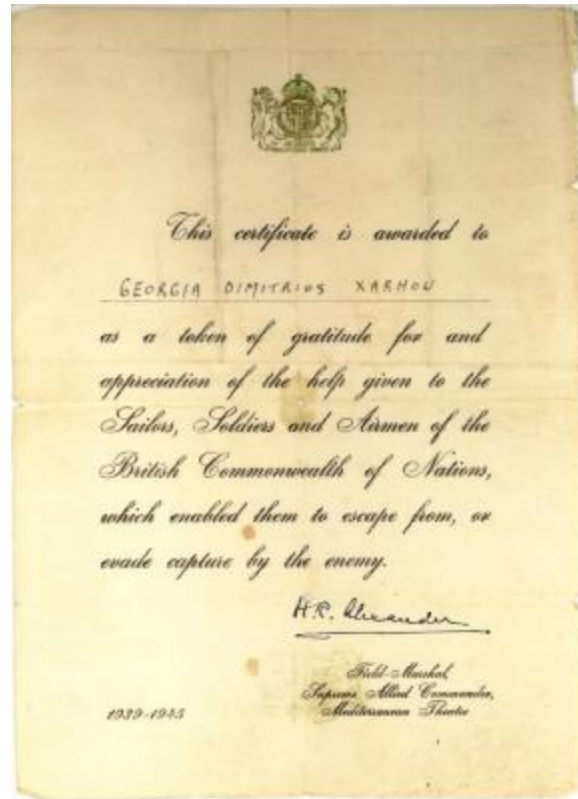 This certificate is awarded to
GEORGIA DIMITRIOS XARHOU
as a token of gratitude for and
appreciation of the help given to the
Sailors, Soldiers and Airmen of the
British Commonwealth of Nations,
which enabled them to escape from, or
evade capture by the enemy.
H.R. Alexander
Field-Marshal,
Supreme Allied Commander,
Mediterranean Theatre
1939-1945